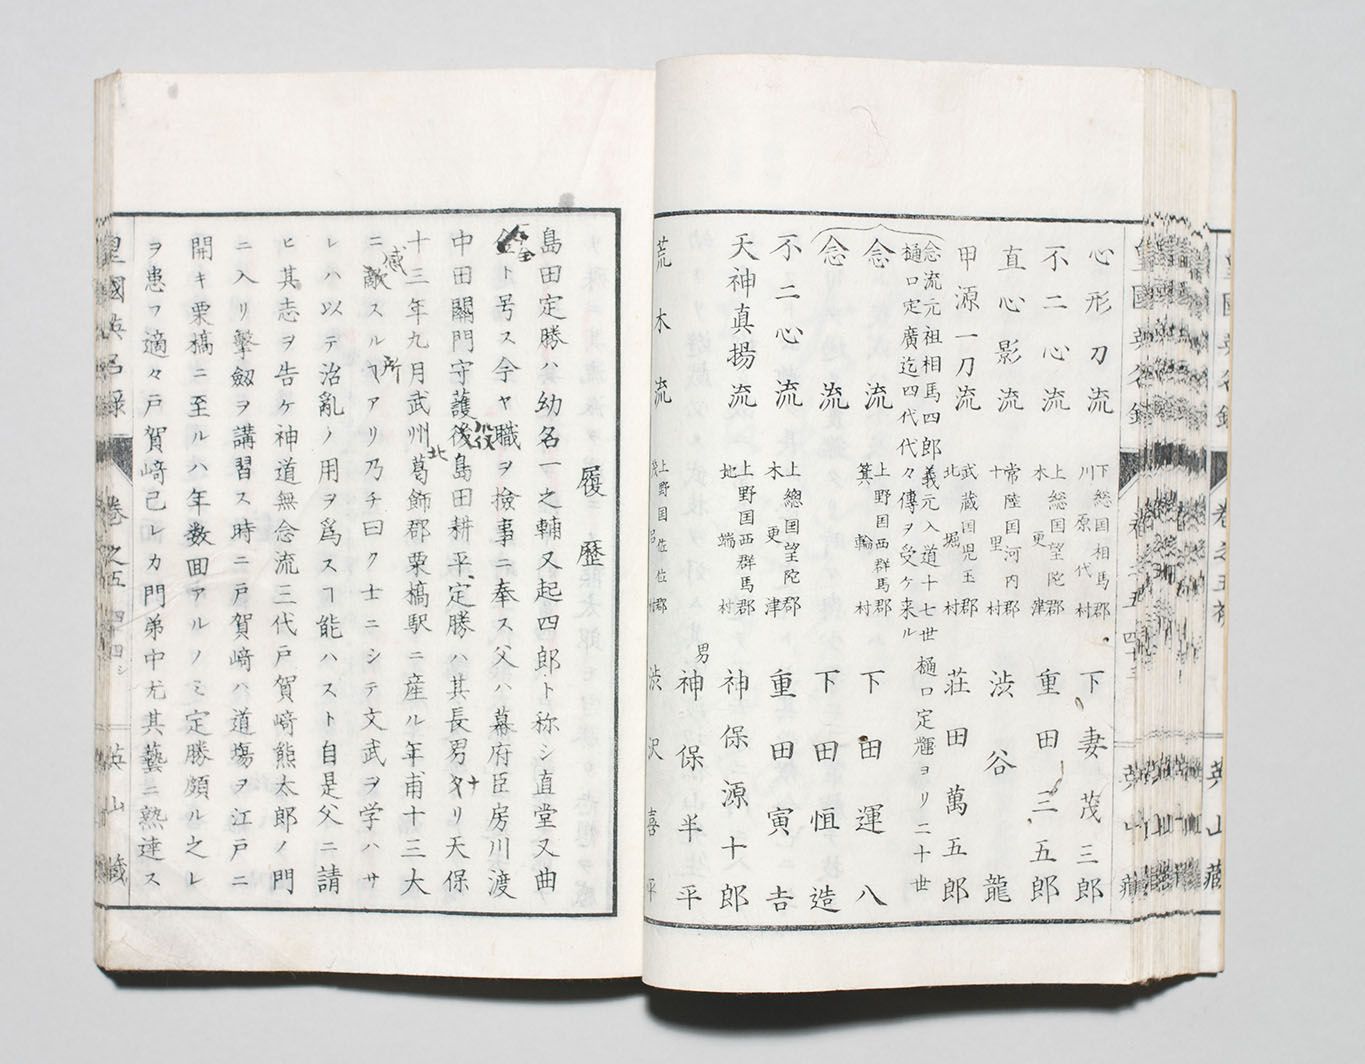 心形刀流 下総国相馬郡川原代村 下妻茂三郎
不二心流 上総国望陀郡木更津 重田三五郎
直心影流 常陸国河内郡十里村 渋谷龍
甲源一刀流 武蔵国児玉郡北堀村 荘田萬五郎
念流元祖相馬四郎義元入道十七世樋口定輝ヨリ二十世
樋口定廣迄四代代々傳ヲ受ケ来ル
念流 上野国西群馬郡箕輪村 下田運八
念流 下田恒造
不二心流 上總国望陀郡木更津 重田寅吉
天神真揚流 上野国西群馬郡地端村 神保源十郎
男 神保半平
荒木流 上野国佐位郡 村 渋沢喜平
履歴
島田定勝ハ幼名一之輔又起四郎ト称シ直堂又曲
全ト号ス今ヤ職ヲ撿事ニ奉ス父ハ幕府臣房川渡
中田關門守護役後島田耕平定勝ハ其長男ナリ天保
十三年九月武州北葛飾郡栗橋駅ニ産ル年甫十三大
ニ感スル所アリ乃チ曰ク士ニシテ文武ヲ学ハサ
レハ以テ治亂ノ用ヲ為スヿ能ハスト自是父ニ請
ヒ其志ヲ告ケ神道無念流三代戸賀﨑熊太郎ノ門
ニ入リ擊劔ヲ講習ス時ニ戸賀﨑ハ道場ヲ江戸ニ
開キ栗橋ニ至ルハ年数回アルノミ定勝頗ル之レ
ヲ患フ適々戸賀﨑己レカ門弟中尤其藝ニ熟達ス
皇國英名録 巻之五 四十四 英山藏